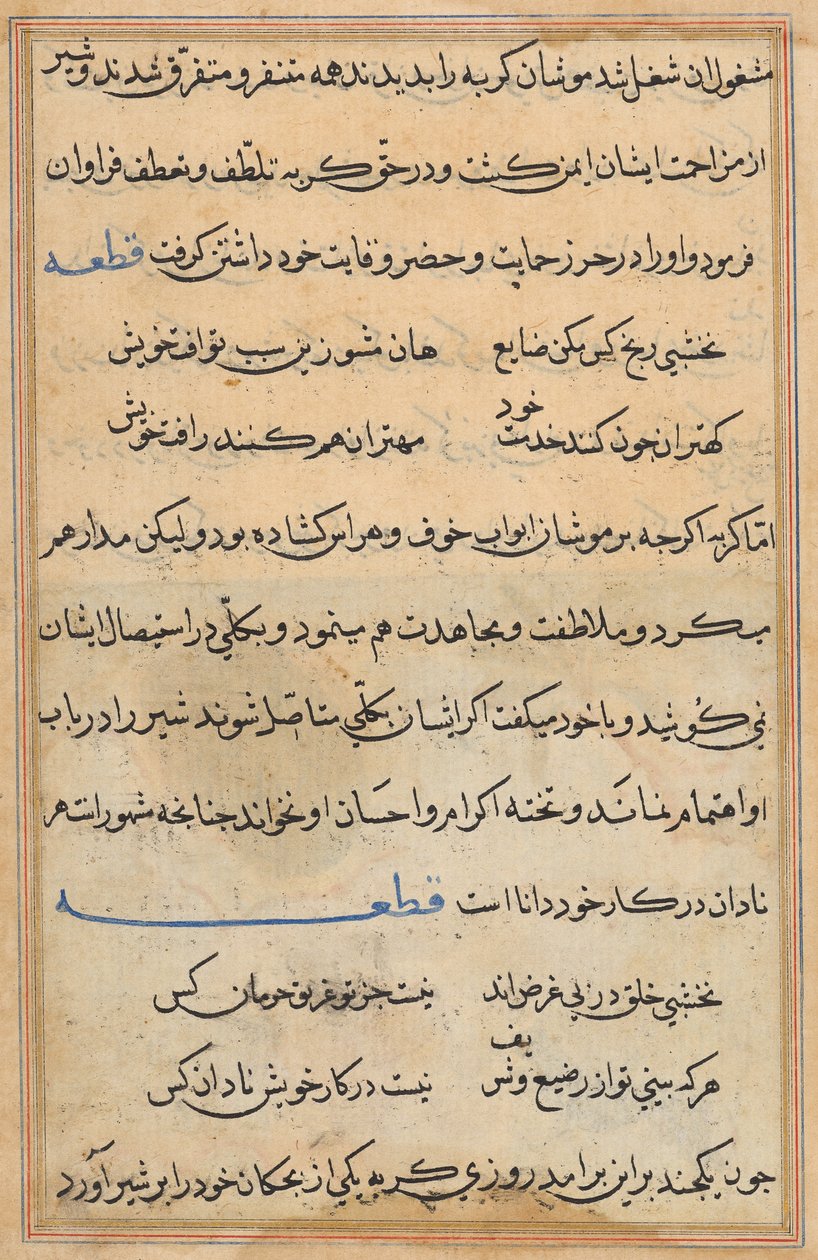 مشغول ان شغل شد موشان كربه را بديدند همه متنفر و متفرّق شدند و شير
از مزاحمت ايشان ايمن كشت و در حقّ كربه تلطّف و تعطف فراوان
فرمود و او را در حرز حمايت و حضر وقايت خود داشتن كرفت قطعه
نخشبي رنج كس مكن ضايع هان مشو زين سبب تو افت خويش
كهتران جون كنند خدمت خود مهتران هم كنند رافت خويش
امّا كربه اكرجه بر موشان ابواب خوف و هراس كشاده بود وليكن مدارهم
ميكرد و ملاطفت و مجاهدت هم مينمود و بكلّي در استيصال ايشان
نمي كُوشيد و با خود ميكفت اكر ايشان بكلّي متاصّل شوند شير را در باب
او اهتمام نماند و تخته اكرام و احسان او نخواند جنانجه مشهور است هر
نادان در كار خود دانا است قطعه
نخشبي خلق در پي غرض اند نيست جز تو غريق حرمان كس
هر كه بيني تو از رضيع و شريف نيست در كار خويش نادان كس
جون يكجند بر اين برامد روزي كربه يكي از بجكان خود را بر شير آورد